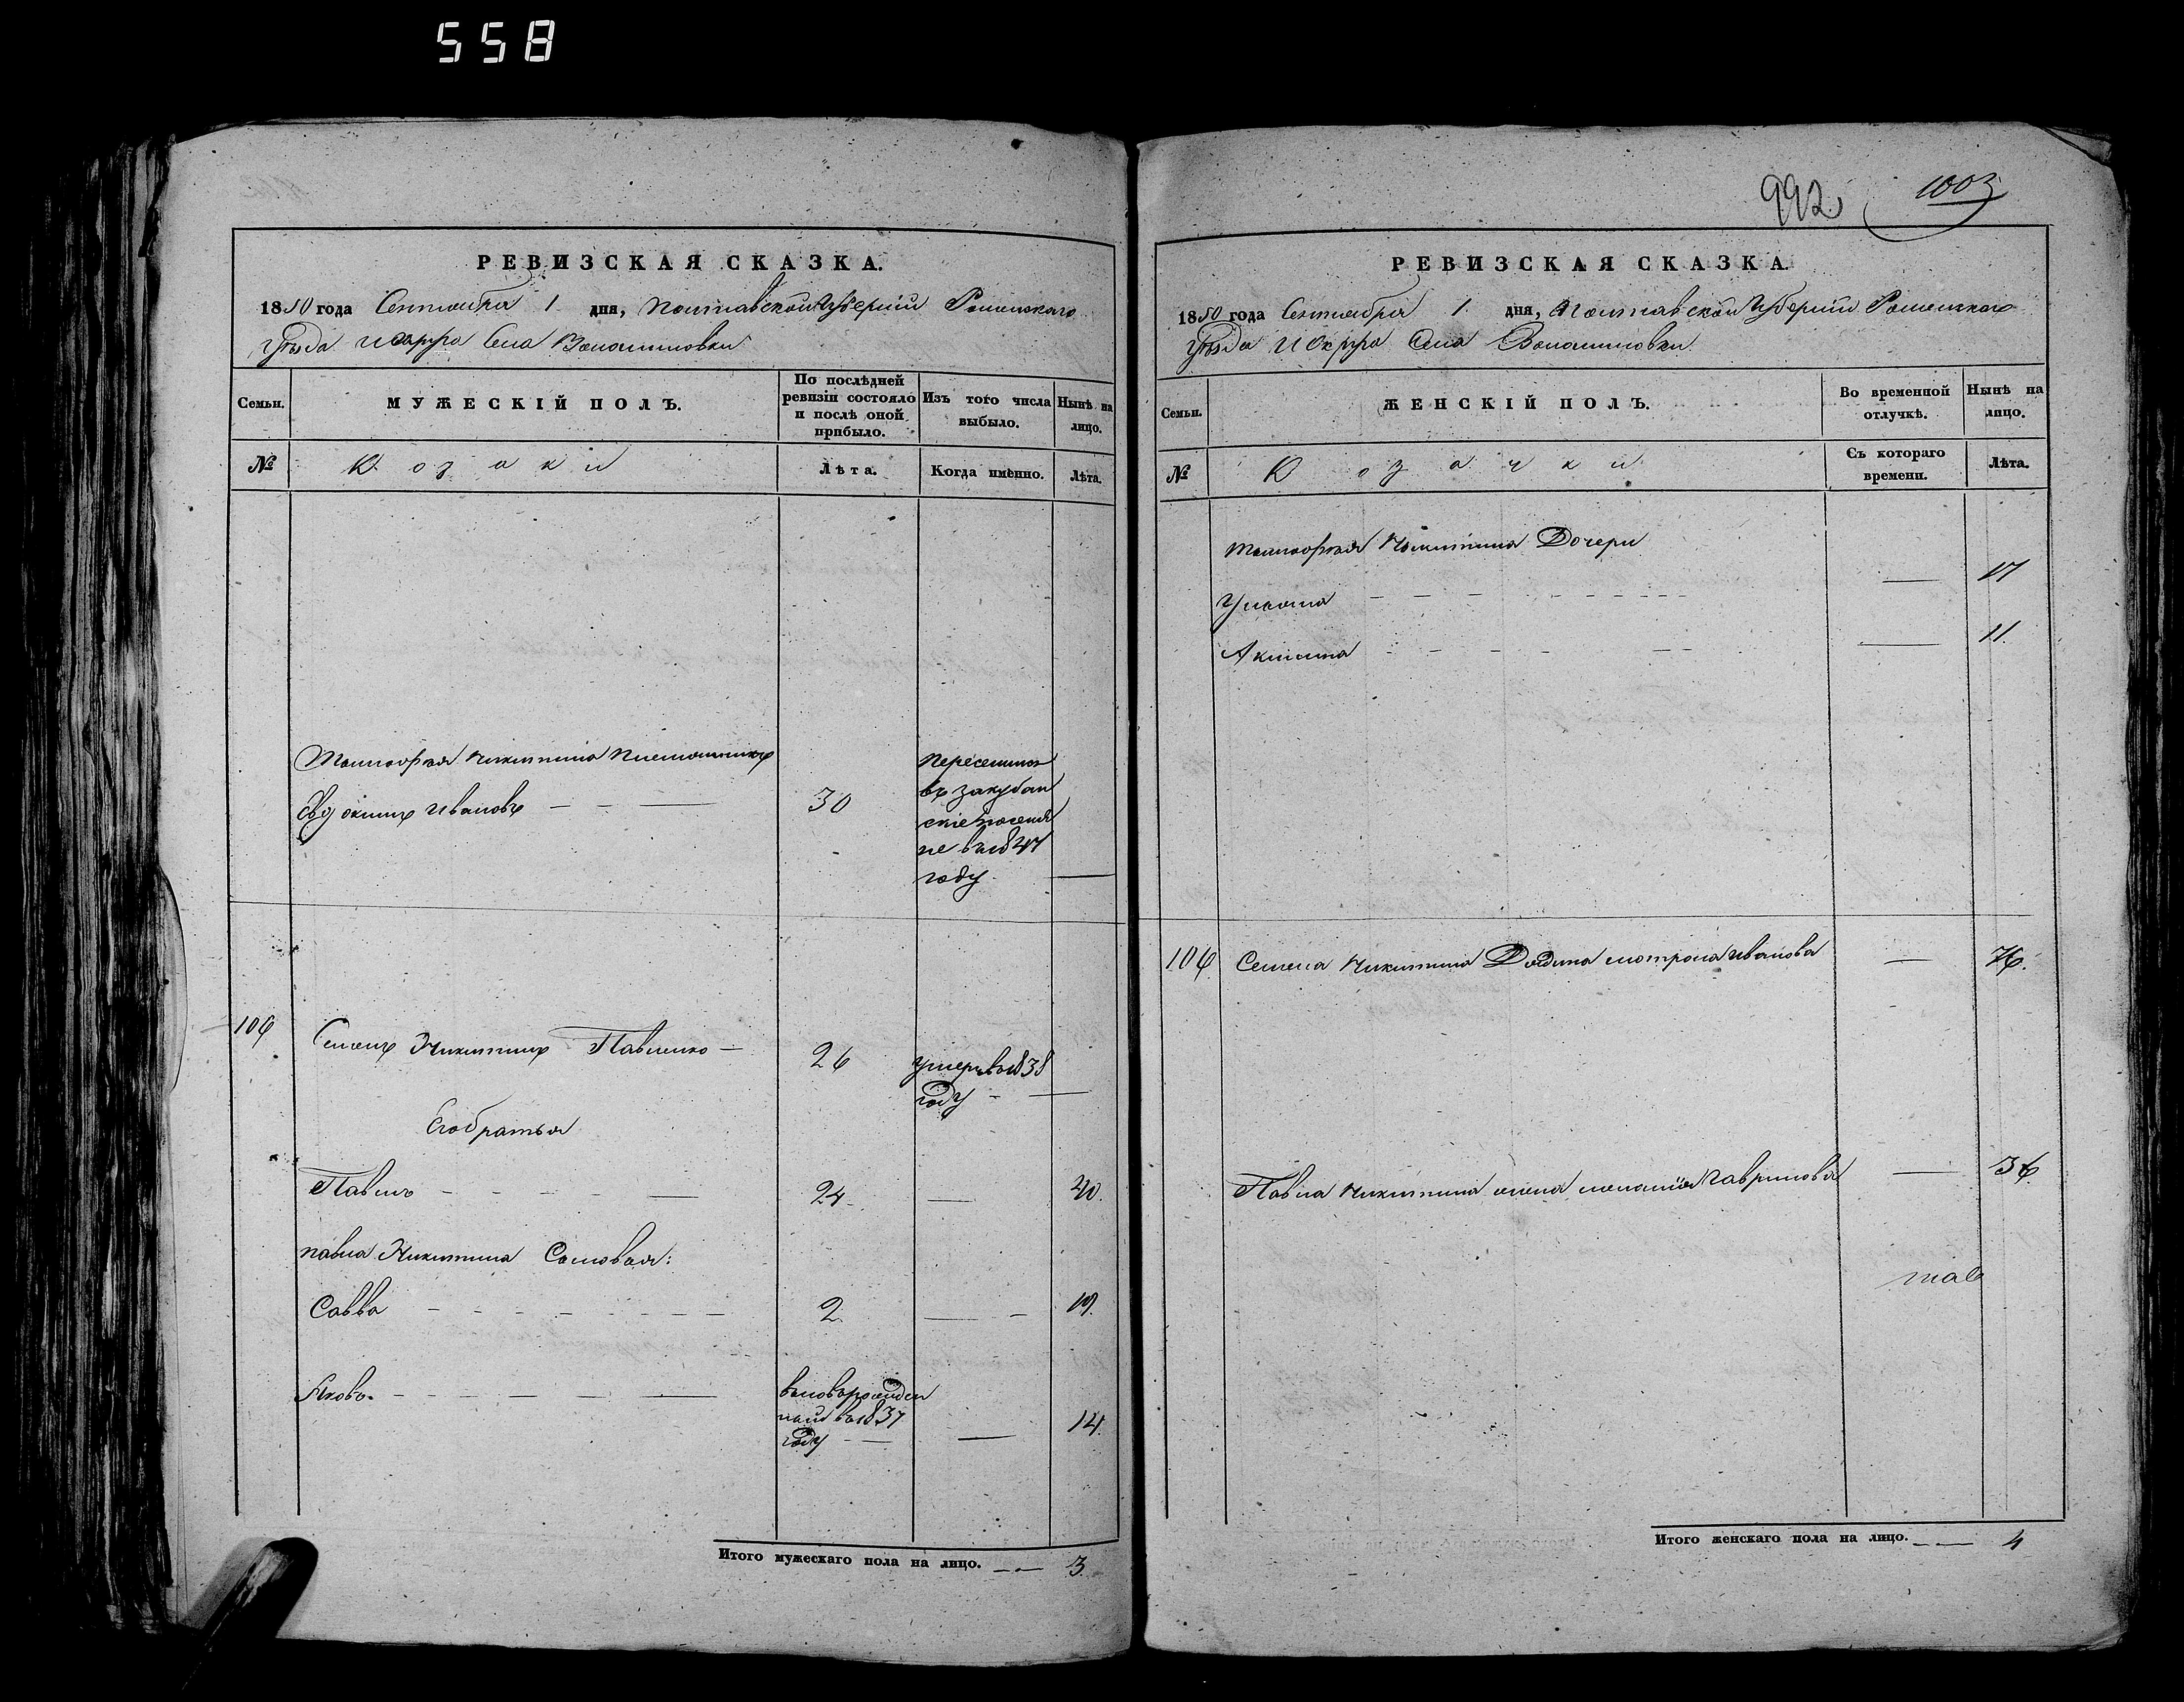 558
РЕВИЗСКАЯ СКАЗКА.
1850 года Сентября 1 дня, Полтавской Губернии Роменского
Уезда и округа Села Волошиновки
Семьи.
МУЖЕСКІЙ ПОЛЪ.
По послѣдней
ревизіи состояло
и послѣ оной
прибыло.
Изъ того числа
выбыло.
Нынѣ на
лицо.
№
Козаки
Лѣта.
Когда именно.
Лѣта.
Никитина племянникъ
Евдокимъ Ивановъ
30
переселился
въ закубан
ские поселе
ние въ 1847
году
106
Семенъ Никитинъ Павленко
26
умеръ въ 1838
году
Его братья
Павелъ
24
40.
павла Никитина Сыновья:
Савва
2
19.
Яковъ
вновьрожден
ный въ 1837
году
14.
Итого мужескаго пола на лицо.
3.
992
1003
РЕВИЗСКАЯ СКАЗКА.
1850 года Сентября 1. дня, Полтавской Губерніи Роменскаго
Уезда и Округа Села Волошиновки
Семьи.
ЖЕНСКІЙ ПОЛЪ.
Во временной
отлучкѣ.
Нынѣ на
лицо.
№
Козачки
Съ котораго
времени.
Лѣта.
Никитина Дочери
17
Ульяна
11.
Аксинья
106
Семена Никитина мотрона Иванова
76.
Павла Никитина жена меланія Гаврилова
36
Итого женскаго пола на лицо.
4